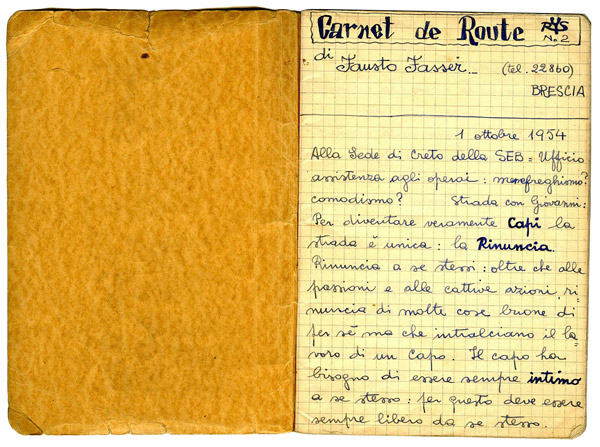 Carnet de Route RYS
N.2
di Fausto Fasser... (tel. 22860)
BRESCIA
1 ottobre 1954
Alla Sede di Creto della SEB = Ufficio
assistenza agli operai : menefreghismo?
comodismo? Strada con Giovanni :
Per diventare veramente Capi la
strada è unica : la Rinuncia.
Rinuncia a se stessi : oltre che alle
passioni e alle cattive azioni, ri=
nuncia di molte cose buone di
per sé ma che intralciano il la=
voro di un Capo. Il capo ha
bisogno di essere sempre intimo
a se stesso : per questo deve essere
sempre libero da se stesso.